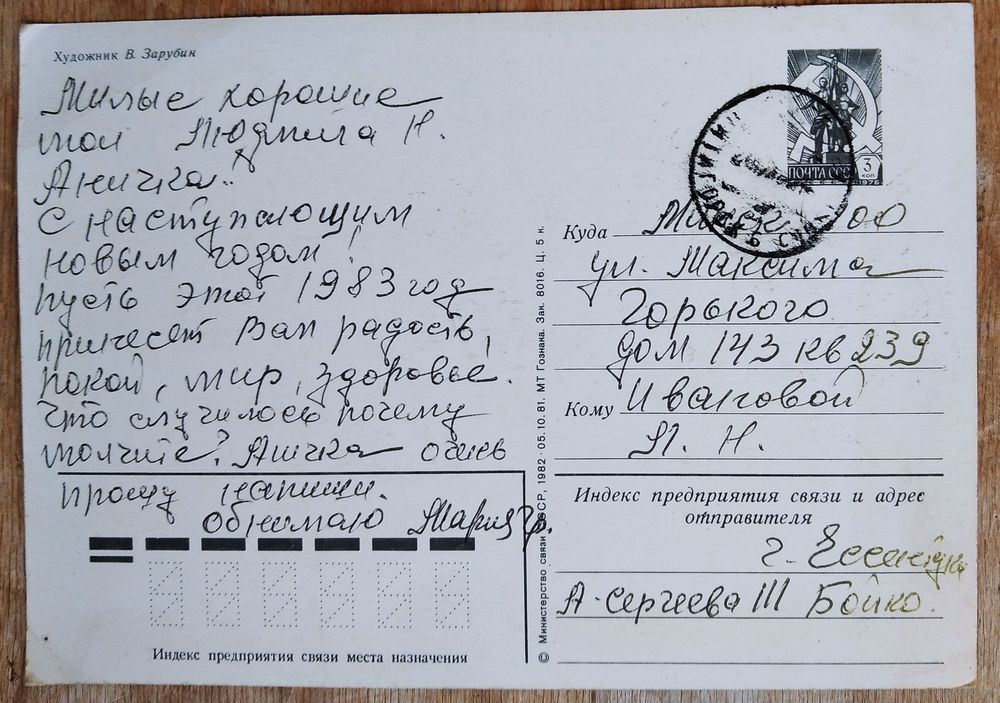 Художник В. Зарубин
Милые хорошие
мои Людмила Н.
Аничка!
С наступающим
новым годом!
пусть этот 1983 год
принесет Вам радость,
покой, мир, здоровье.
Что случилось почему
молчите? Аничка очень
прошу напиши.
Обнимаю Мария Гр.
Индекс предприятия связи места назначения
© Министерство связи СССР, 1982 · 05.10.81. МТ Гознака. Зак. 8016. Ц. 5 к.
ПОЧТА СССР 3 КОП
Куда
ул. Максима
Горького
дом 143 кв 239
Кому Ивановой
Л. Н.
Индекс предприятия связи и адрес
отправителя
г. Ессентуки
А. Сергеева Ш Бойко.